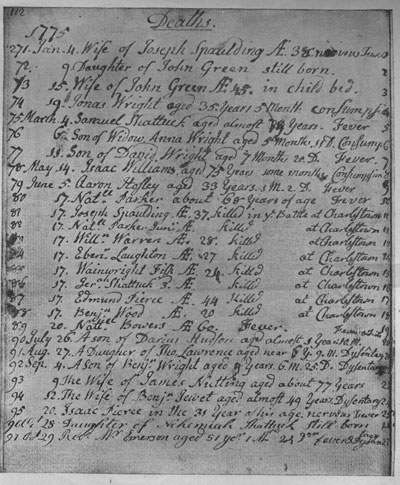 112
Deaths.
1775
271 Jan. 4. Wife of Joseph Spaulding Æ. 38. nervous Fever
72. 9 Daughter of John Green still born. 2
73 15. Wife of John Green Æ. 45. in child bed. 3
74 19. Jonas Wright aged 35 Years 5 Month. Consumpn 4
75 March 4. Samuel Shattuck aged almost Years. Fever 5
76 6. Son of Widow Anna Wright aged 5 Months, D. Consump 6
77 11. Son of David Wright aged 7 Months 20 D. Fever. 7
78 May 14. Isaac Williams, aged 75 Years some months, Consumption
79 June 5. Aaron aged 33 Years. 1 M. 2 D. Fever 9
80 17. Natll. Parker about 68 Years of age Fever 10
81 17. Joseph Spaulding Æ. 37. killed in ye Battle at Charlstown 11
82 17. Natll. Parker Junr. Æ. killd at Charlstown 12
83 17. Willm. Warren Æ. 28. killd at Charlstown 13
84 17. Ebenr. Laughton Æ. 27 killd at Charlstown 14
85 17. Wainwright Fisk Æ 24. killd at Charlstown 15
86 17. Jerh. Shattuck 3. Æ killd at Charlstown 16
87 17. Edmund Pierce Æ. 44 killd at Charlstown 17
88 17. Benjn. Wood Æ. 20 killd at Charlstown 18
89 20. Natll. Bowers Æ 60. Fever.
90 July 26. A son of Darius Hudson age almost 3 Years 10. M. 20
91 Aug. 27. A Daugher of Tho. Lawrence aged near 8 Y. 9. M. Dysentery
92 Sep. 4. A son of Benjn. Wright aged Years. 6. M. 25. D. Dysentery
93 9 The Wife of James Nutting aged about 77 Years 23
94 12. The Wife of Benjn. Jewet aged almost 49 Years. Dysentery
95 20. Isaac Pierce in the 31 Year of his age, nervous Fever 25
96 Oct. 28 Daughter of Nehemiah Shattuck still born 26
97 Oct 29 Revd. Mr. Emerson aged 31 ye. 1 M. 24 Ds. Fever & Dysentery